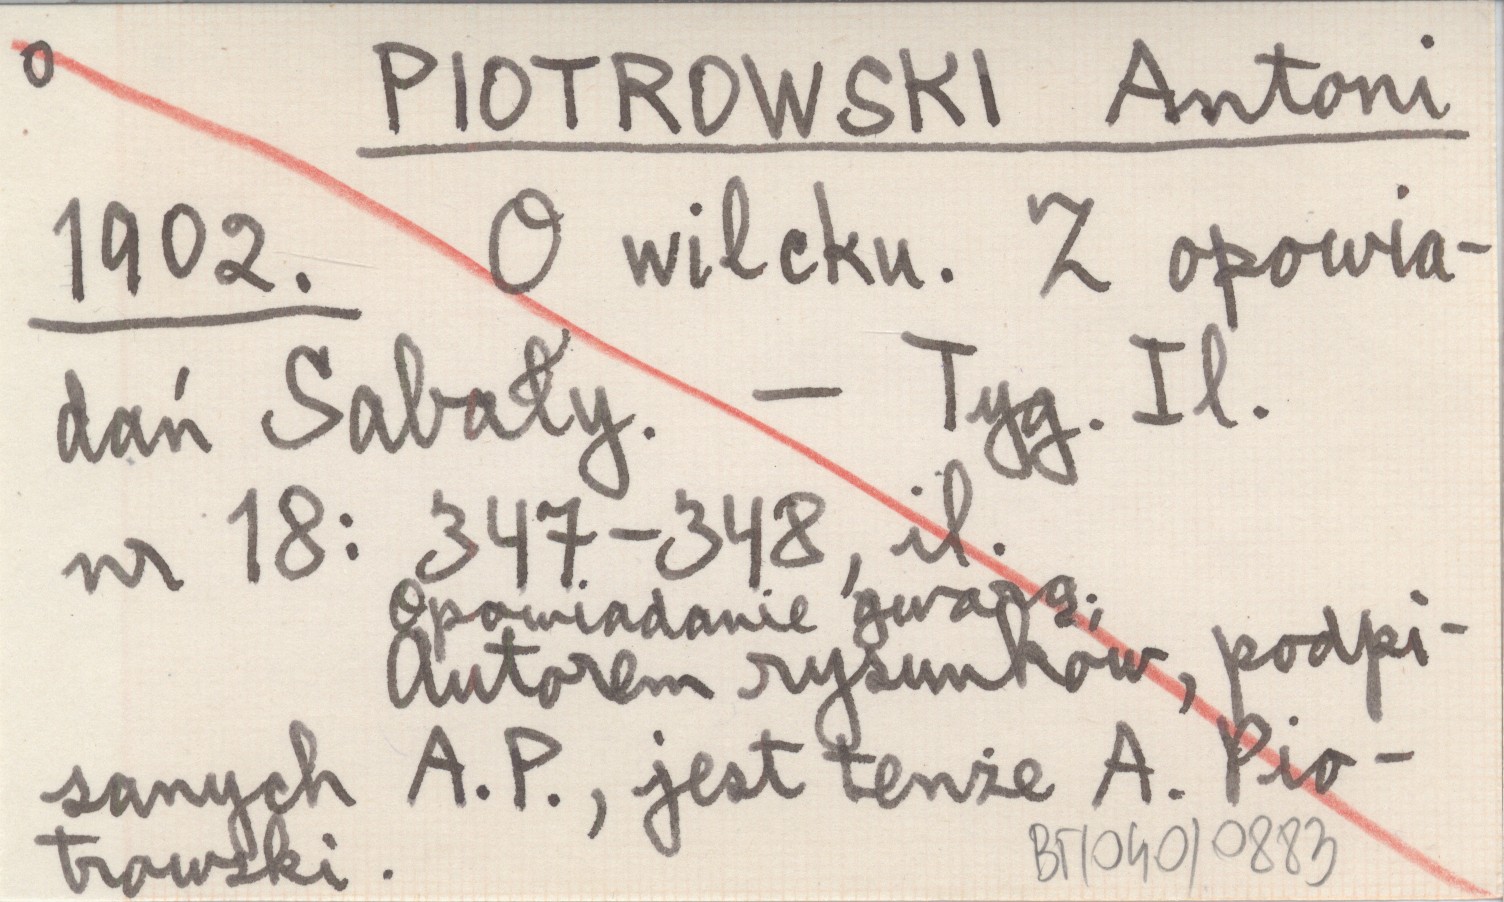 o PIOTROWSKI Antoni
1902. O wilcku. Z opowia-
dań Sabały. — Tyg. Il.
nr 18: 347-348, il.
Opowiadanie gwarą;
Autorem rysunków, podpi-
sanych A.P., jest tenże A. Pio-
trowski.
BT/040/0883